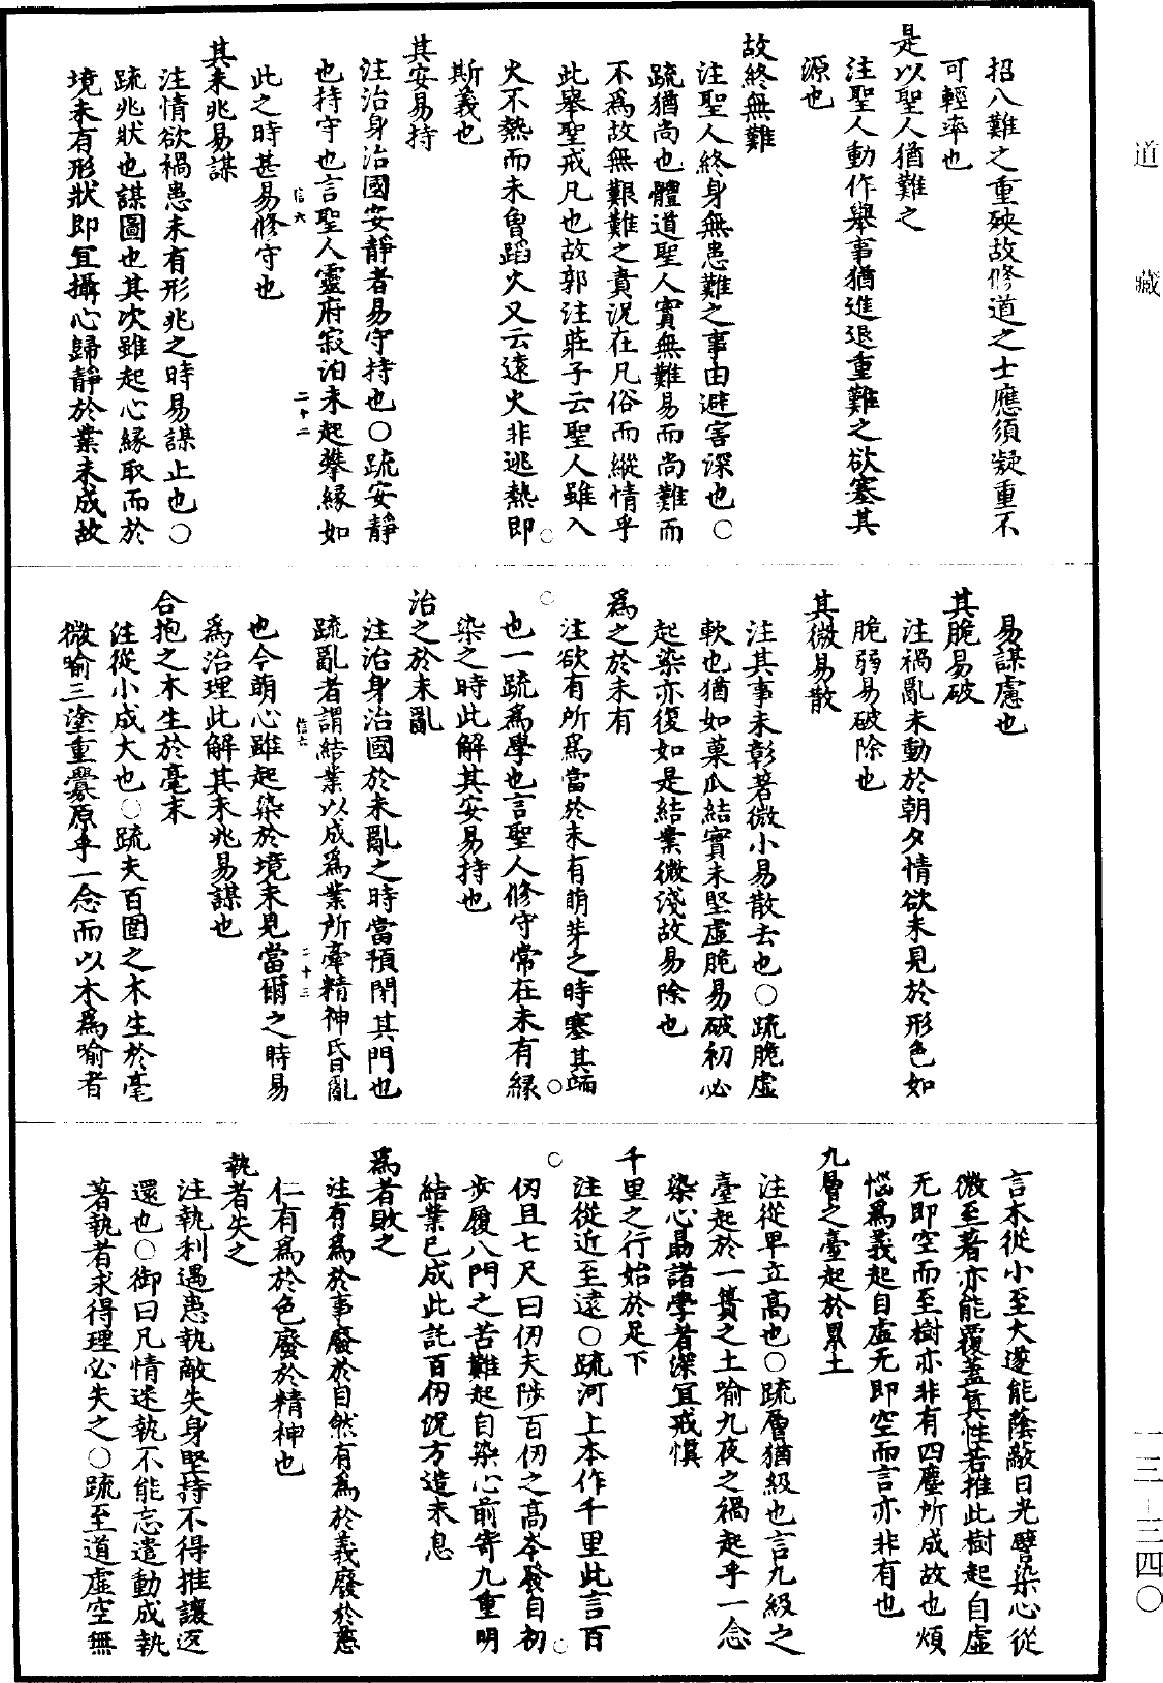 道藏
招八難之重殃故修道之士應須凝重不
可輕率也
是以聖人猶難之
注聖人動作舉事猶進退重難之欲塞其
源也
故終無難
注聖人終身無患難之事由避害深也○
疏猶尚也體道聖人實無難易而尚難而
不為故無艱難之責況在凡俗而縱情乎
此舉聖戒凡也故郭注莊子云聖人雖入
火不熱而未曾蹈火又云遠火非逃熱即
斯義也
其安易持
注治身治國安靜者易守持也○疏安靜
也持守也言聖人靈府寂泊未起攀緣如
信六 二十二
此之時甚易修守也
其未兆易謀
注情欲禍患未有形兆之時易謀止也○
疏兆狀也謀圖也其次雖起心緣取而於
境未有形狀即宜攝心歸靜於業未成故
易謀慮也
其脆易破
注禍亂未動於朝夕情欲未見於形色如
脆弱易破除也
其微易散
注其事未彰著微小易散去也○疏脆虛
軟也猶如菓瓜結實未堅虛脆易破初必
起染亦復如是結業微淺故易除也
為之於未有
注欲有所為當於未有萌芽之時塞其端
也一疏為學也言聖人修守常在未有緣
染之時此解其安易持也
治之於未亂
注治身治國於未亂之時當預閉其門也
疏亂者謂結業以成為業所牽精神昏亂
信六 二十三
也今萌心雖起染於境未見當爾之時易
為治理此解其未兆易謀也
合抱之木生於毫末
注從小成大也○疏夫百圍之木生於毫
微喻三塗重釁原乎一念而以木為喻者
言木從小至大遂能蔭敵日光譬染心從
微至著亦能覆蓋真性若推此樹起自虛
无即空而至樹亦非有四塵所成故也煩
惱為義起自虛无即空而言亦非有也
九層之臺起於累土
注從卑立高也○疏層猶級也言九級之
臺起於一蕢之土喻九夜之禍起乎一念
染心勗諸學者深宜戒慎
千里之行始於足下
注從近至遠○疏河上本作千里此言百
仞且七尺曰仞夫陟百仞之高岑發自初
步履八門之苦難起自染心前寄九重明
結業已成此託百仞況方造未息
為者敗之
注有為於事廢於自然有為於義廢於慈
仁有為於色廢於精神也
執者失之
注執利遇患執敵失身堅持不得推讓返
還也○御曰凡情迷執不能忘遣動成執
著執者求得理必失之○疏至道虛空無
一三—三四〇